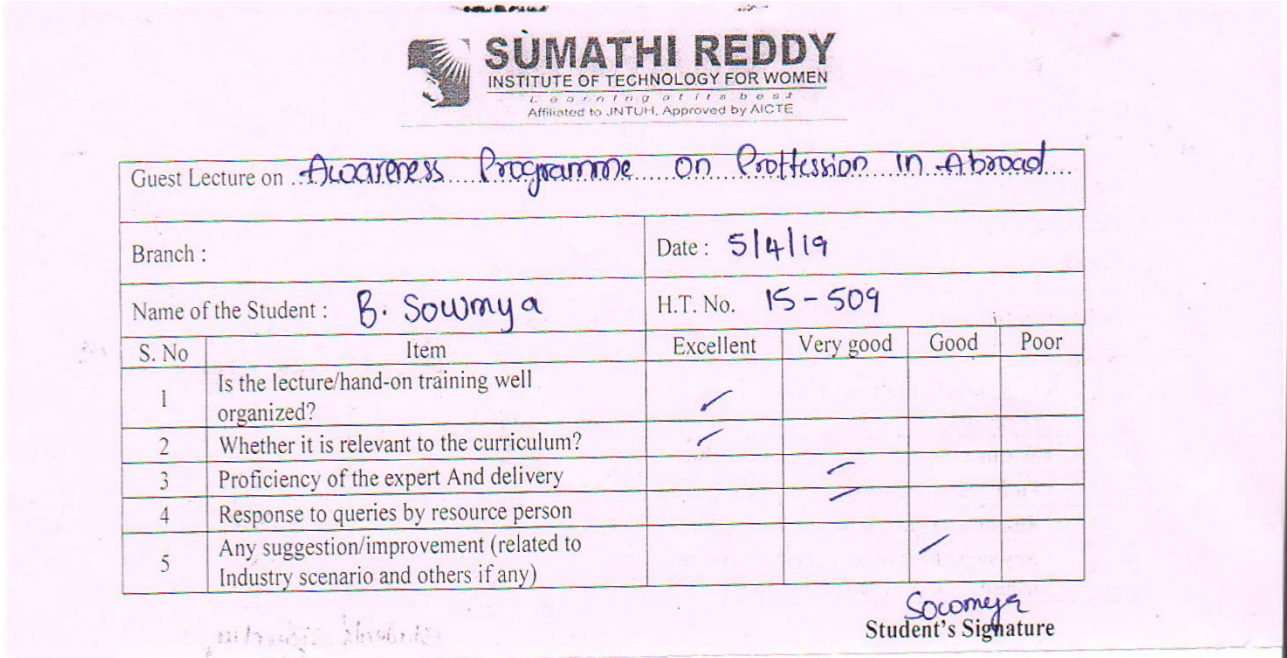 SUMATHI REDDY
INSTITUTE OF TECHNOLOGY FOR WOMEN
Learning at its best
Affiliated to JNTUH, Approved by AICTE
Guest Lecture on ..Awareness Programme on Proffession in Abroad....
Branch :
Date : 5/4/19
Name of the Student : B. Sowmya
H.T. No. 15-509
S. No Item Excellent Very good Good Poor
1 Is the lecture/hand-on training well
organized? ✓
2 Whether it is relevant to the curriculum? ✓
3 Proficiency of the expert And delivery ✓
4 Response to queries by resource person ✓
5 Any suggestion/improvement (related to
Industry scenario and others if any) ✓
Sowmya
Student's Signature